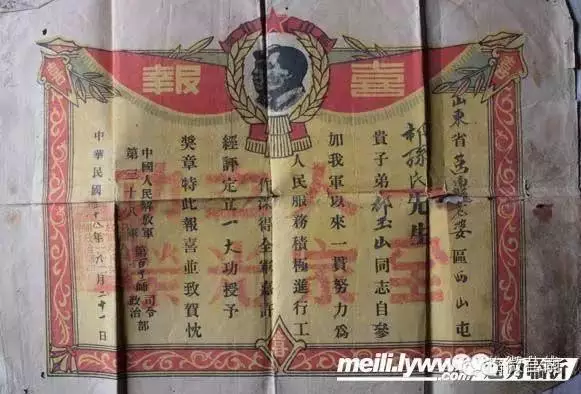 喜報
山東省
區西山屯
孫氏先生
貴子弟祁玉山同志自參
加我軍以來一貫努力為
人民服務積極進行工
作深得全軍嘉許
經評定立一大功授予
獎章特此報喜並致賀忱
中國人民解放軍
第三十八軍
師
司令部
政治
中華民國
年
月二十一日
人立功
全家光榮
meili.lyww